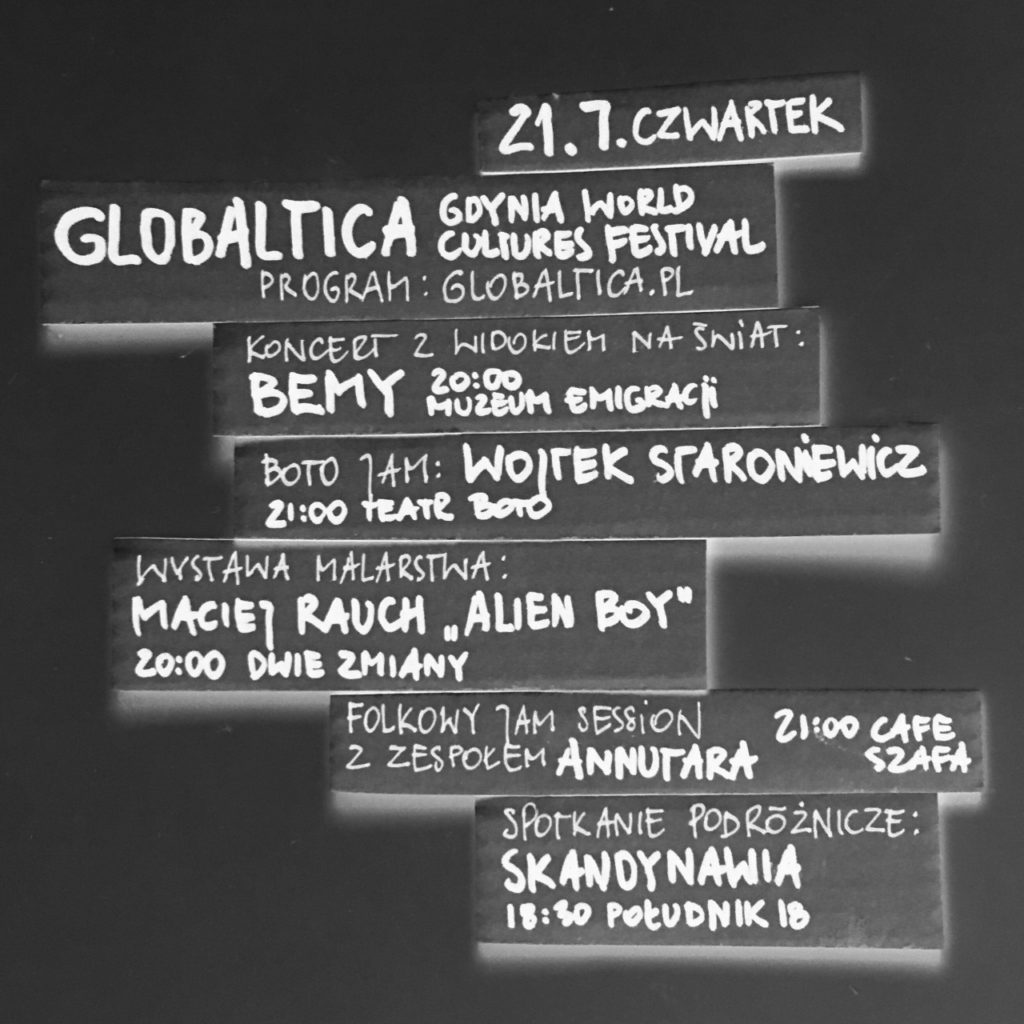 21.7. CZWARTEK
GLOBALTICA GDYNIA WORLD
CULTURES FESTIVAL
PROGRAM: GLOBALTICA.PL
KONCERT Z WIDOKIEM NA ŚWIAT:
BEMY 20:00
MUZEUM EMIGRACJI
BOTO JAM: WOJTEK STARONIEWICZ
21:00 TEATR BOTO
WYSTAWA MALARSTWA:
MACIEJ RAUCH „ALIEN BOY"
20:00 DWIE ZMIANY
FOLKOWY JAM SESSION
Z ZESPOŁEM ANNUTARA
21:00 CAFE
SZAFA
SPOTKANIE PODRÓŻNICZE:
SKANDYNAWIA
18:30 POŁUDNIK 18